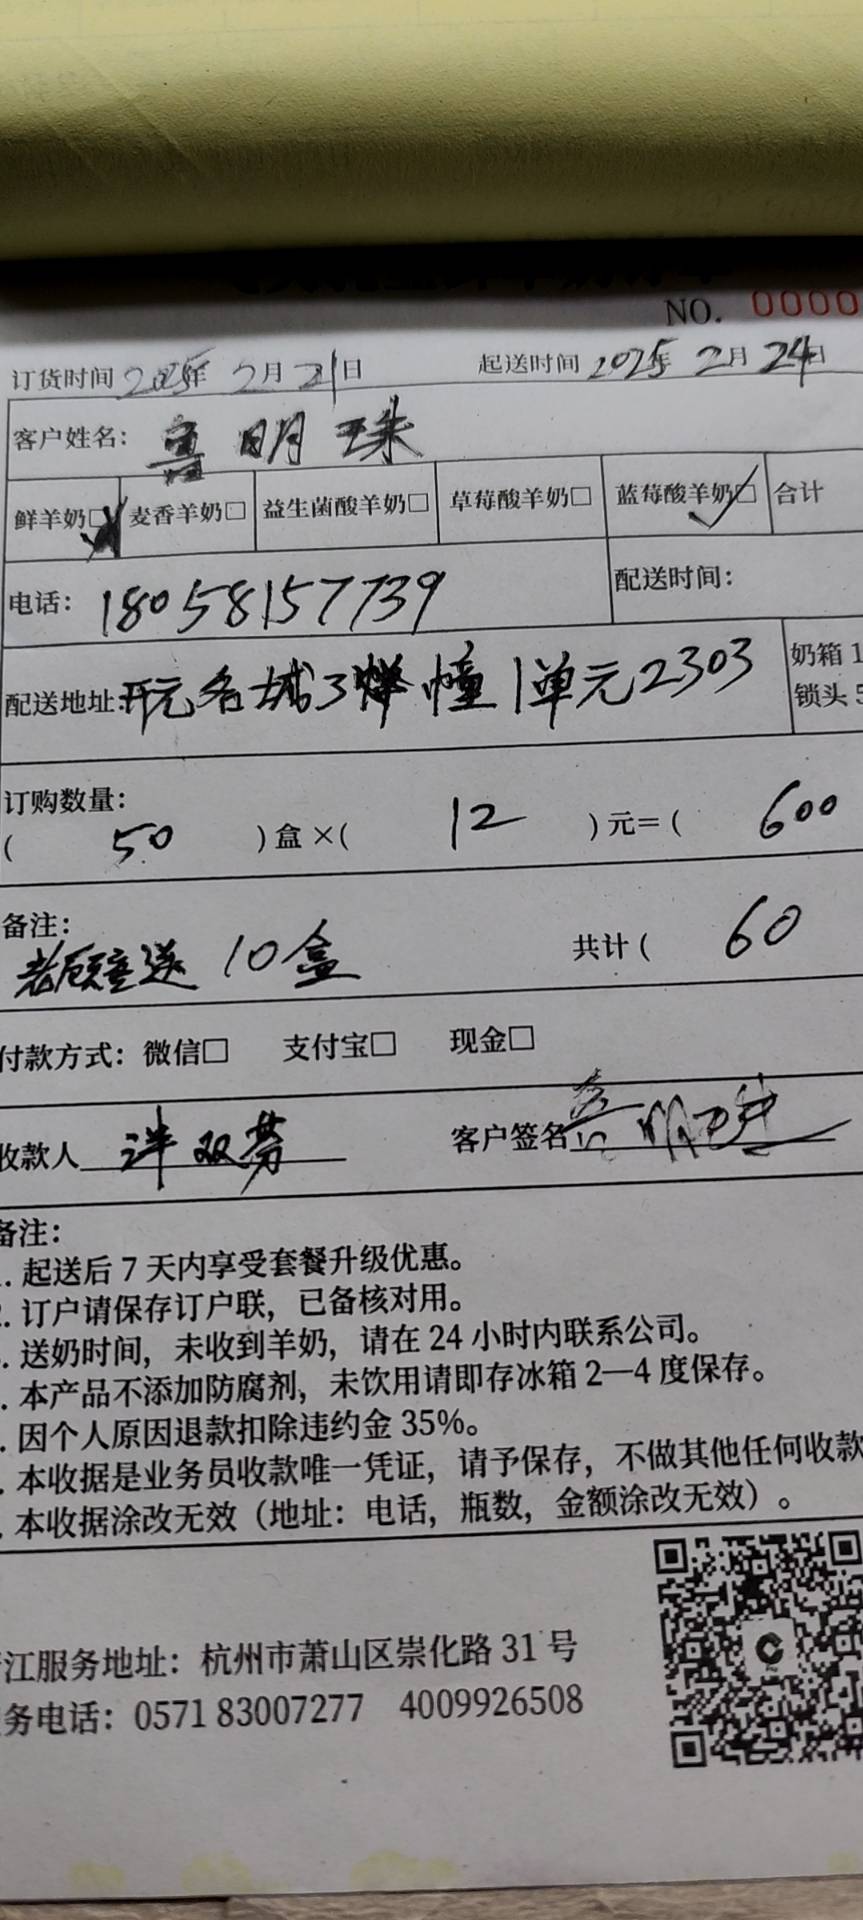 NO. 0000
订货时间 2025年 2月 21日 起送时间 2025年 2月 24日
客户姓名: 鲁明珠
鲜羊奶□ 麦香羊奶□ 益生菌酸羊奶□ 草莓酸羊奶□ 蓝莓酸羊奶□ 合计
电话: 18058157739 配送时间:
配送地址: 开元名城3幢1单元2303 奶箱 1
锁头 5
订购数量:
( 50 ) 盒 ×( 12 ) 元= ( 600
备注:
老顾客送 10盒 共计 ( 60
付款方式: 微信□ 支付宝□ 现金□
收款人 双芬 客户签名 鲁明珠
备注:
. 起送后 7 天内享受套餐升级优惠。
. 订户请保存订户联，已备核对用。
. 送奶时间，未收到羊奶，请在 24 小时内联系公司。
. 本产品不添加防腐剂，未饮用请即存冰箱 2—4 度保存。
. 因个人原因退款扣除违约金 35%。
. 本收据是业务员收款唯一凭证，请予保存，不做其他任何收款
. 本收据涂改无效（地址：电话，瓶数，金额涂改无效）。
江服务地址：杭州市萧山区崇化路 31 号
务电话：0571 83007277 4009926508